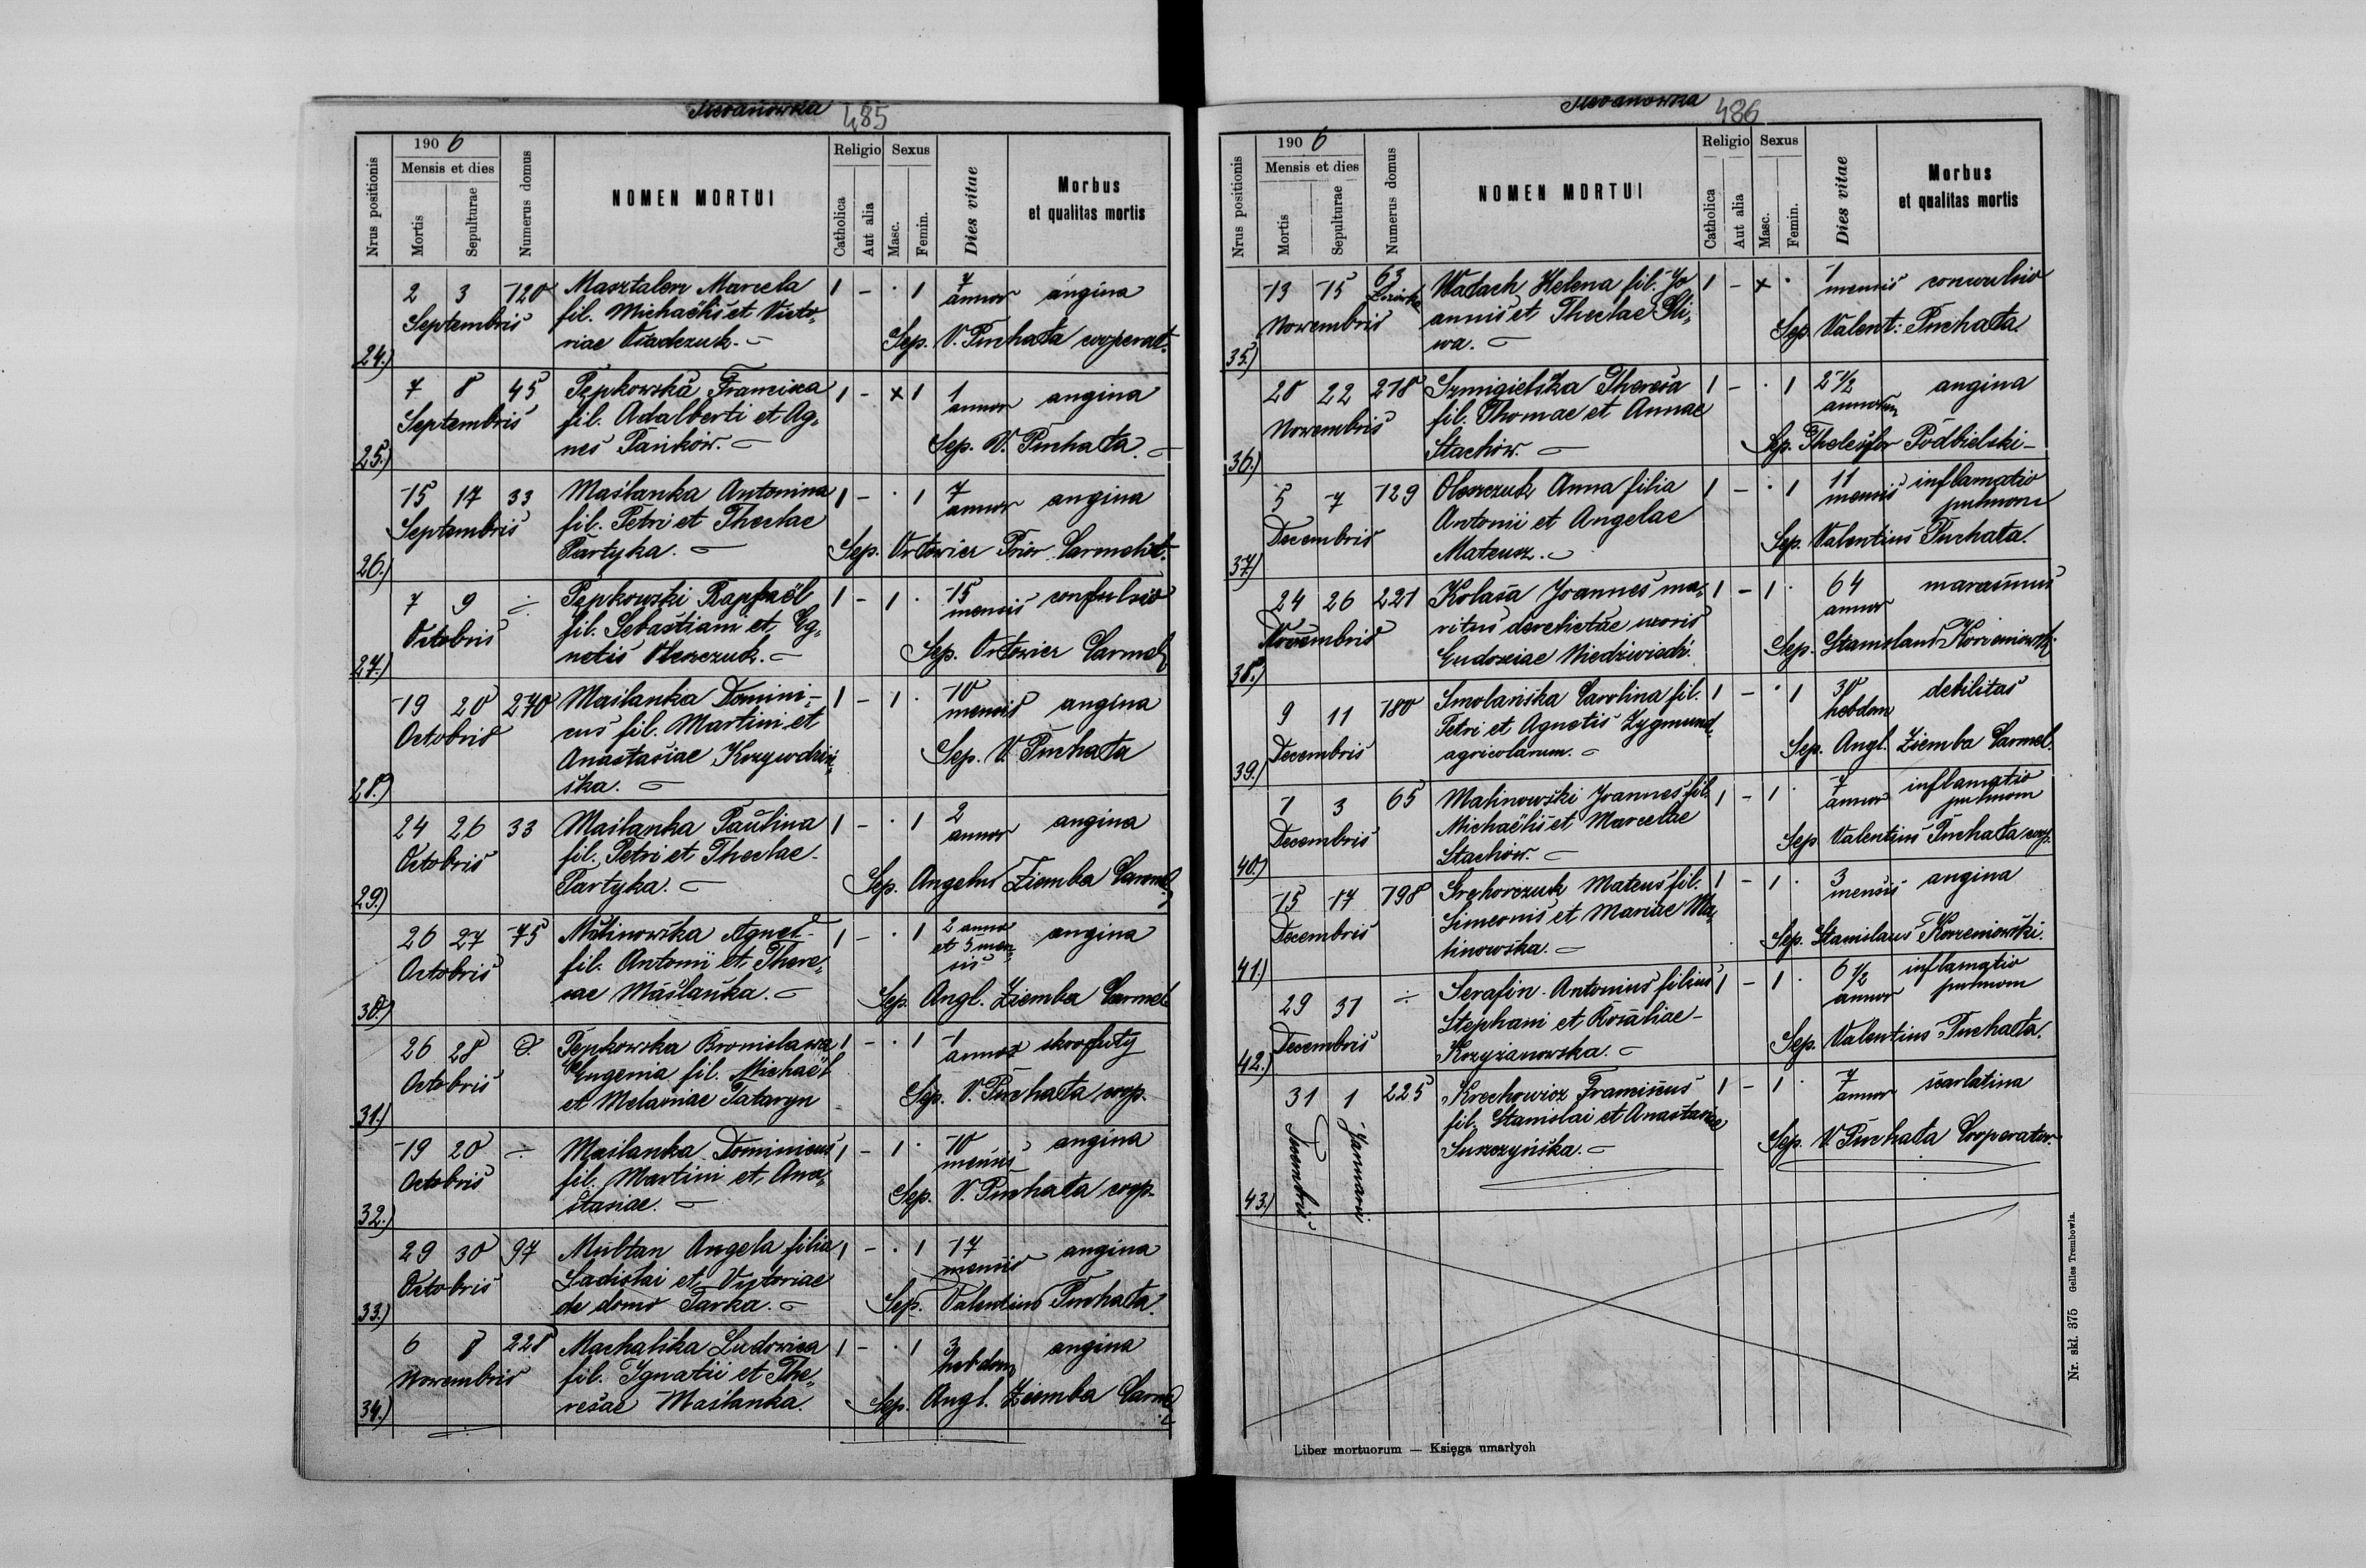 485
1906
Nrus positionis
Mensis et dies
Mortis
Sepulturae
Numerus domus
NOMEN MORTUI
Religio
Catholica
Aut alia
Sexus
Masc.
Femin.
Dies vitae
Morbus
et qualitas mortis
24.) 2 3 120 Masztalerz Marcela 1 - · 1 7 annor angina
Septembris fil. Michaëlis et Victo-
riae Sep. V. Puchała cooperat.
25.) 7 8 45 Pępkowska Francisca 1 - x 1 1 annor angina
Septembris fil. Adalberti et Ag-
nes Pańków. Sep. V. Puchała.
26.) 15 17 33 Maślanka Antonina 1 - · 1 7 annor angina
Septembris fil. Petri et Theclae
Partyka. Sep. Prior Carmelit.
27.) 7 9 ÷ Pępkowski Raphaël 1 - 1 · 15 mensis confulsio
Octobris fil. Sebastiani et Eg-
netis Oleszczuk. Sep. Carmel
28.) 19 20 270 Maślanka Domini- 1 - 1 · 10 mensis angina
Octobris cus fil. Martini et
Anastasiae Krzywdziń- Sep. V. Puchała
ska.
29.) 24 26 33 Maślanka Paulina 1 - · 1 2 annor angina
Octobris fil. Petri et Theclae
Partyka. Sep. Angelus Ziemba Carmel
30.) 26 27 75 Malinowska Agnes 1 - · 1 2 annor et 5 men- sis angina
Octobris fil. Antonii et There-
sae Maślanka. Sep. Angl. Ziemba Carmel
31.) 26 28 Pępkowska Bronisława 1 - · 1 1 annor skrofuły
Octobris Eugenia fil. Michaël
et Melaniae Tataryn Sep. V. Puchała coop.
32.) 19 20 ÷ Maślanka Dominicus 1 - 1 · 10 mensis angina
Octobris fil. Martini et Ana-
stasiae. Sep. V. Puchała coop.
33.) 29 30 97 Multan Angela filia 1 - · 1 17 mensis angina
Octobris Ladislai et Victoriae
de domo Parka. Sep. Valentinus Puchała.
34.) 6 8 228 Machalska Ludovica 1 - · 1 3 hebdom angina
Novembris fil. Ignatii et The-
resae Maślanka. Sep. Angl. Ziemba Carmel
486
1906
Nrus positionis
Mensis et dies
Mortis
Sepulturae
Numerus domus
NOMEN MORTUI
Religio
Catholica
Aut alia
Sexus
Masc.
Femin.
Dies vitae
Morbus
et qualitas mortis
35.) 13 15 63 Wałach Helena fil. Jo 1 - x · 1 mensis convulsio
Novembris annis et Theclae Śli-
wa. Sep. Valent: Puchała
36.) 20 22 218 Szmigielska Theresa 1 - · 1 2 1/2 annorum angina
Novembris fil. Thomae et Annae
Stachów. Sep. Thelesfor Podbielski
37.) 5 7 129 Oleszczuk Anna filia 1 - · 1 11 mensis inflamatio pulmom
Decembris Antonii et Angelae
Mateusz. Sep. Valentinus Puchała.
38.) 24 26 221 Kolasa Joannes ma- 1 - 1 · 64 annor marasmus
Novembris ritus derelictae uxoris
Eudoxiae Sep. Stanislaus Korzeniowski
39.) 9 11 180 Smolańska Carolina fil. 1 - · 1 30 hebdom debilitas
Decembris Petri et Agnetis Zygmund
agricolarum. Sep. Angl. Ziemba Carmel.
40.) 1 3 65 Malinowski Joannes fil. 1 - 1 · 7 annor inflamatio pulmom
Decembris Michaëlis et Marcelae
Stachów. Sep Valentinus Puchała coop.
41.) 15 17 198 Hrehorczuk Mateus fil. 1 - 1 · 3 mensis angina
Decembris Simeonis et Mariae Ma-
linowska. Sep. Stanislaus Korzeniowski.
42.) 29 31 ÷ Serafin Antonius filius 1 - 1 · 6 1/2 annor inflamatio pulmom
Decembris Stephani et Rosaliae
Krzyżanowska. Sep. Valentinus Puchała.
43.) 31 1 225 Krechowicz Franciscus 1 - 1 · 7 annor scarlatina
Decembris Januarii fil. Stanislai et Anastasiae
Suszczyńska. Sep. V. Puchała Cooperator.
Liber mortuorum — Księga umarłych
Nr. skł. 375 Gelles Trembowla.